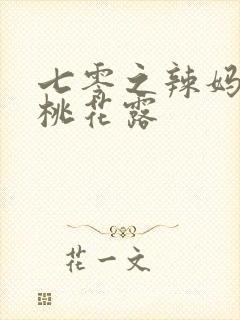 七零之辣妈
桃花露
花一文